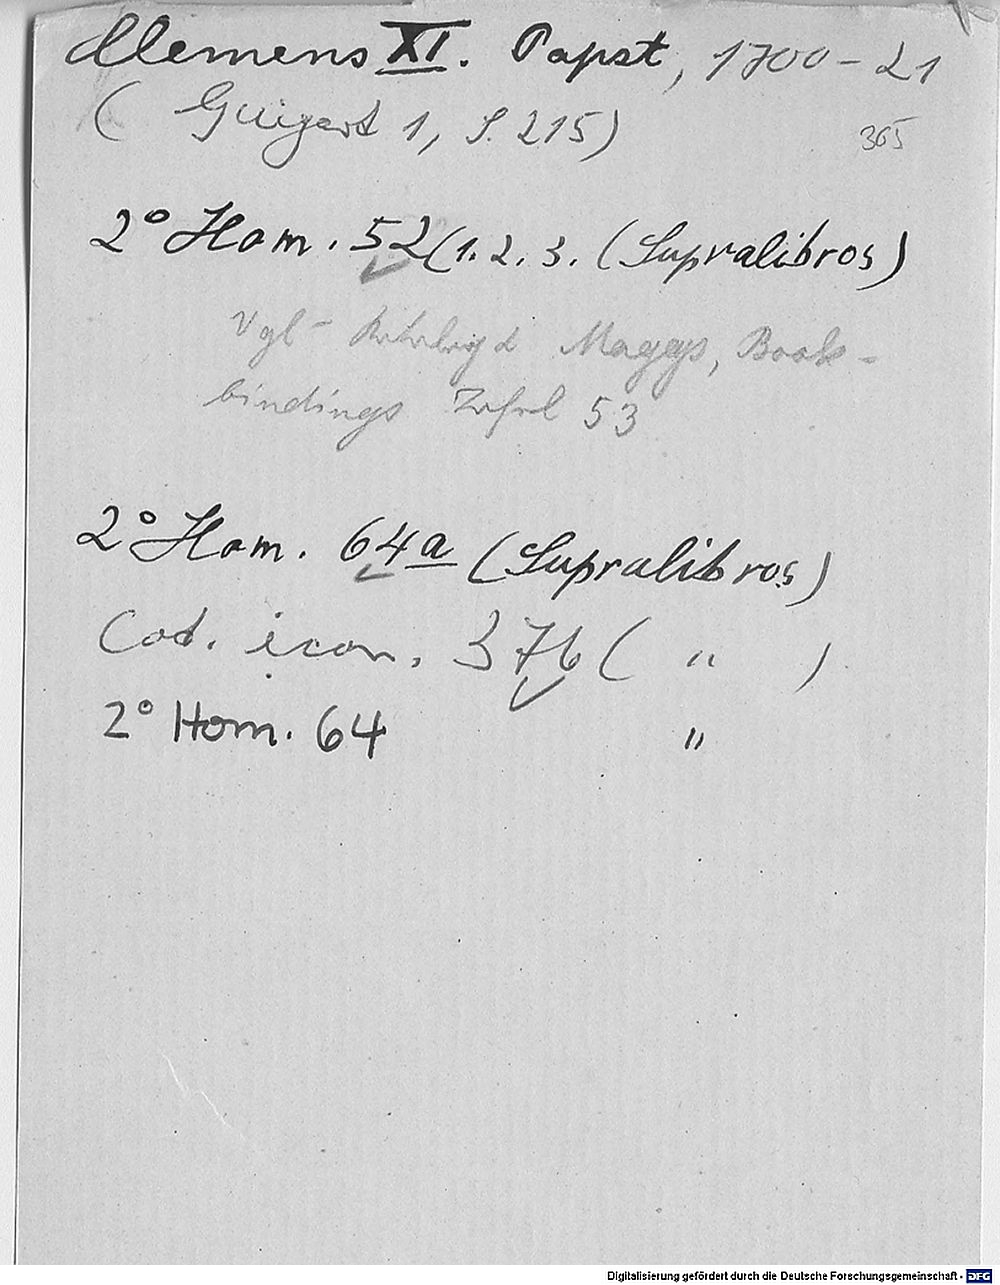 Clemens XI. Papst, 1700-21
(Guigard 1, S. 215)
365
2° Hom. 52(1.2.3. (Supralibros)
Vgl. Katalog d Maggs, Book-
bindings Tafel 53
2° Hom. 64a (Supralibros)
Cod. icon. 376 ( " )
2° Hom. 64 "
Digitalisierung gefördert durch die Deutsche Forschungsgemeinschaft - DFG